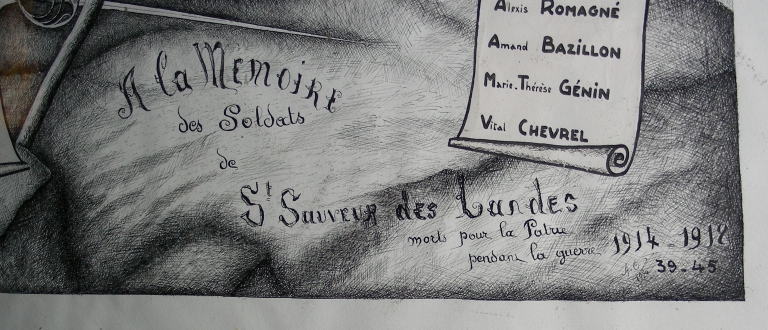 Alexis ROMAGNÉ
Amand BAZILLON
Marie-Thérèse GÉNIN
Vital CHEVREL
A la Memoire
des Soldats
de
St Sauveur des Landes
morts pour la Patrie
pendant la guerre 1914-1918
39-45